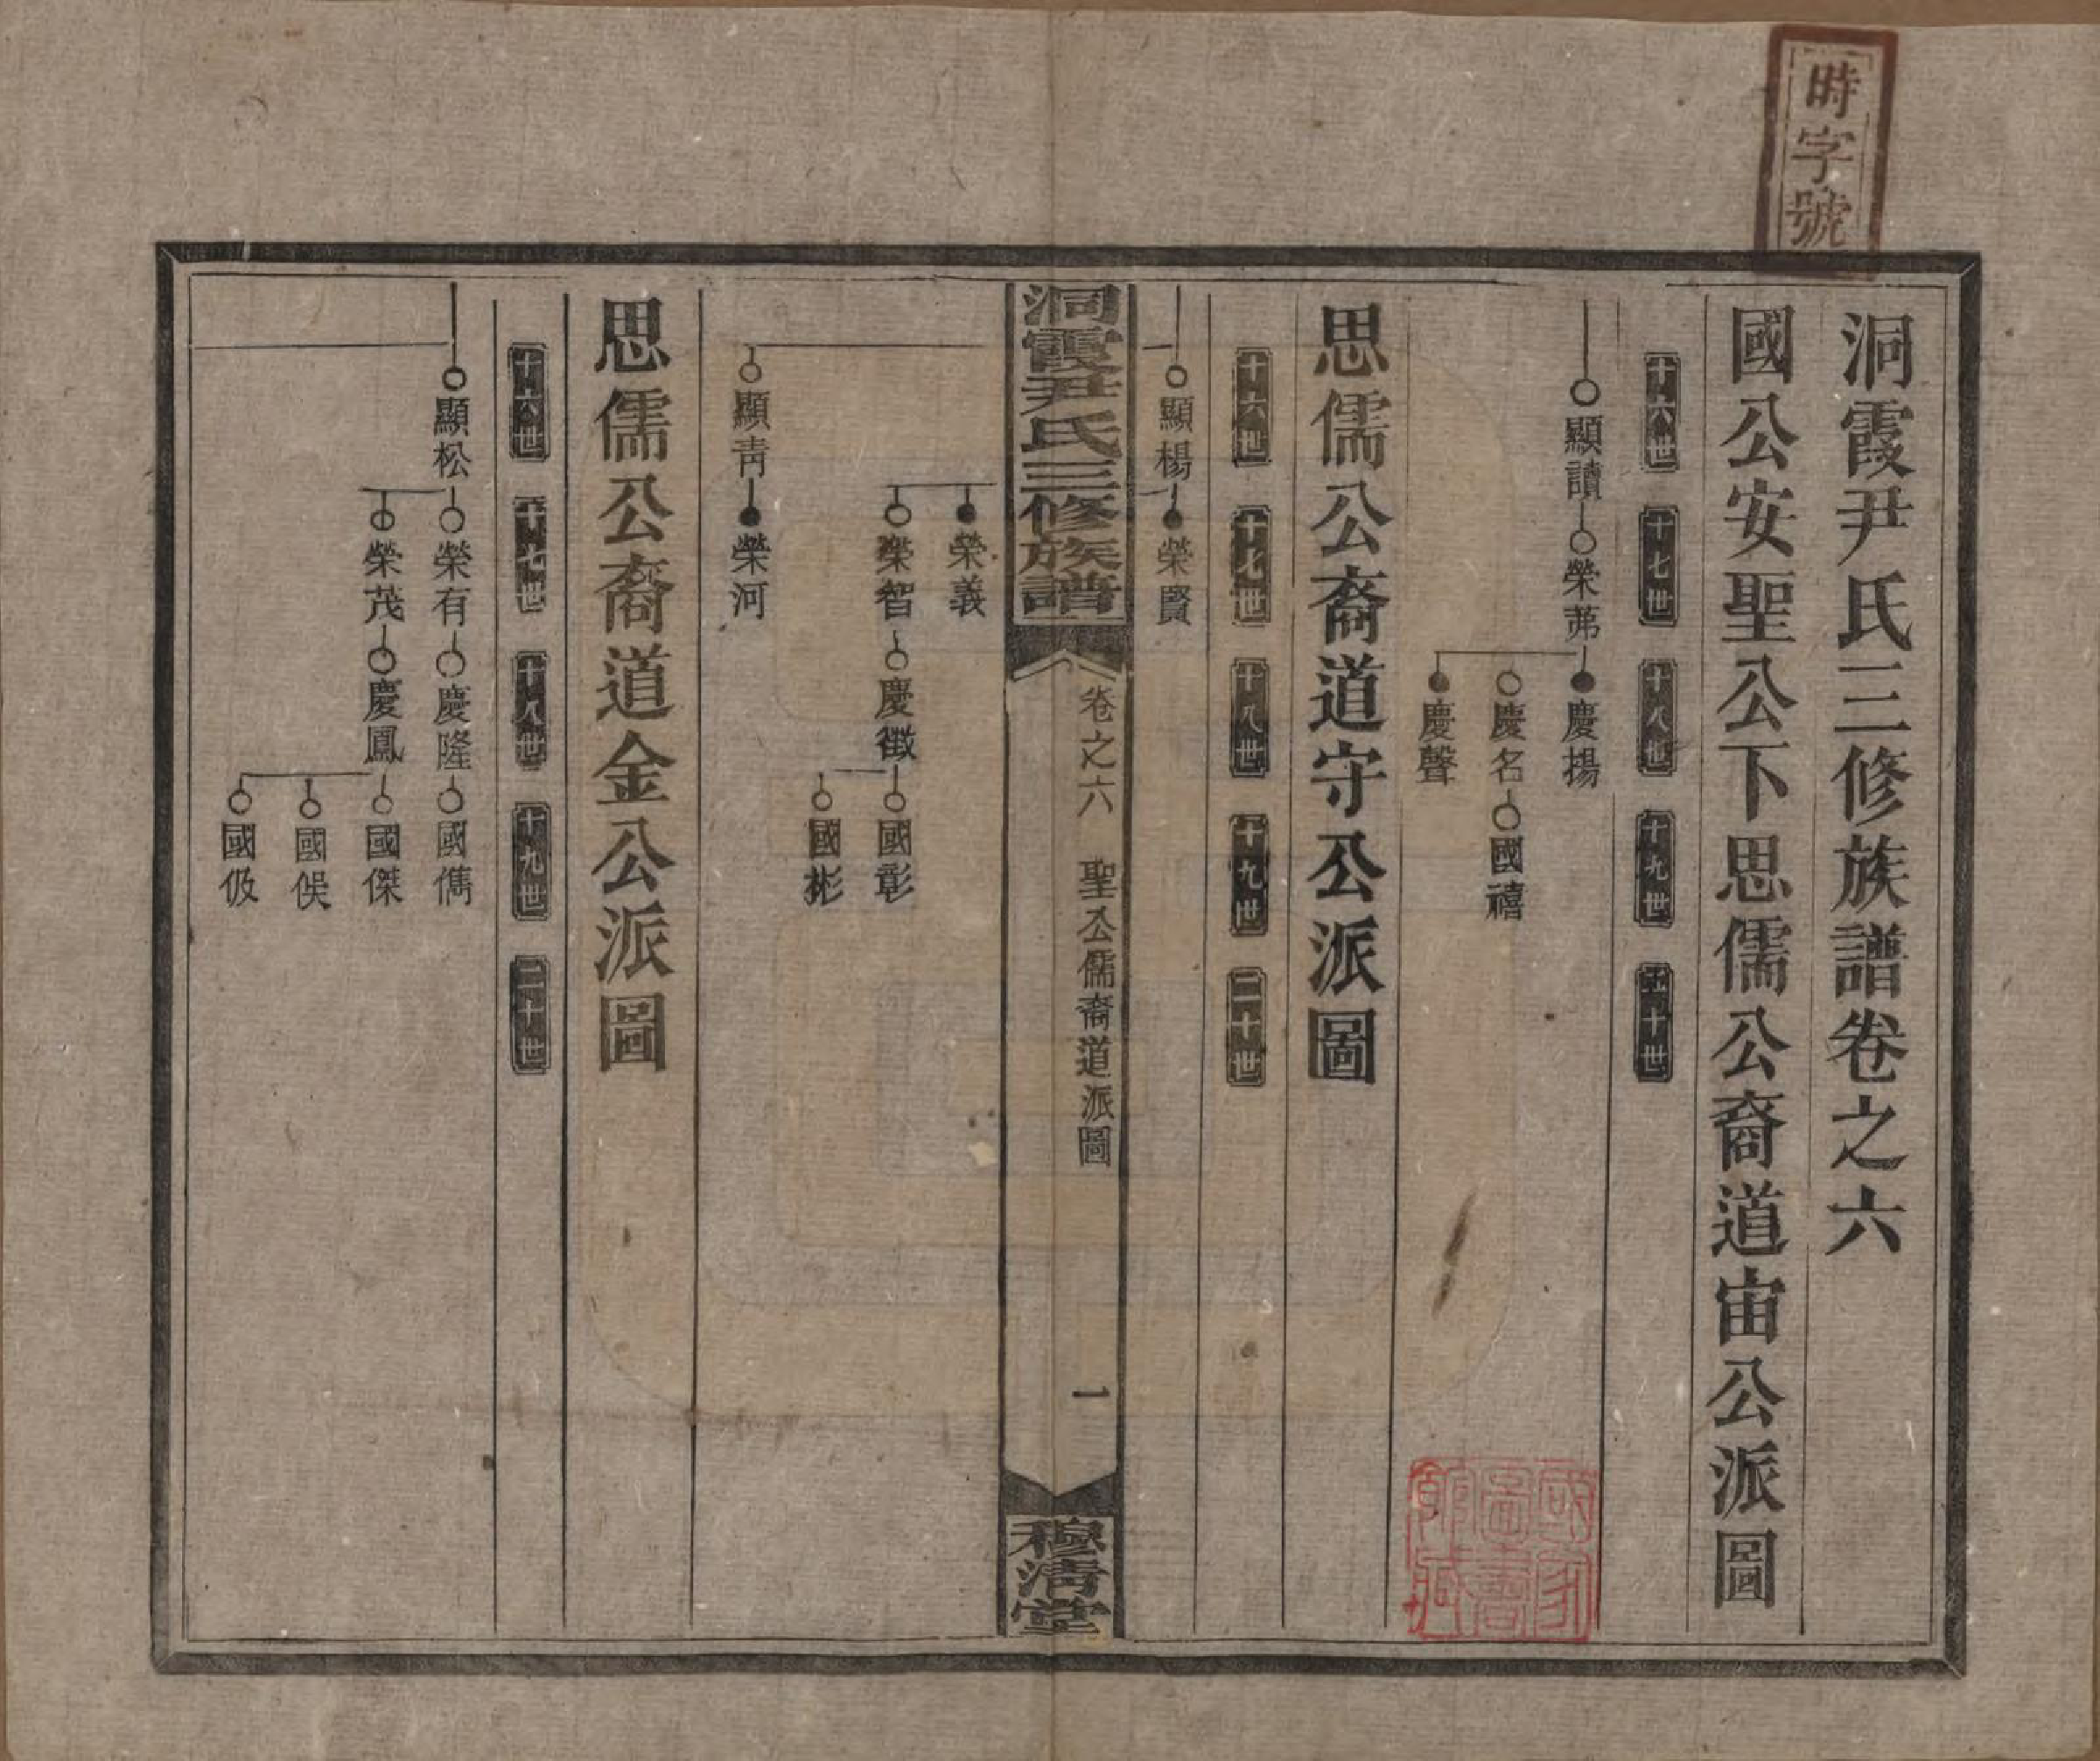 時字號
洞霞尹氏三修族譜卷之六
國公安聖公下思儒公裔道宙公派圖
十六世 十七世 十八世 十九世 二十世
顯讀 榮茀 慶揚
慶名 國禧
慶聲
思儒公裔道守公派圖
十六世 十七世 十八世 十九世 二十世
顯楊 榮賢
洞霞尹氏三修族譜 卷之六 聖公儒裔道派圖 一 穆清堂
榮義
榮智 慶徵 國彰
國彬
顯靑 榮河
思儒公裔道金公派圖
十六世 十七世 十八世 十九世 二十世
顯松 榮有 慶隆 國儁
榮茂 慶鳳 國傑
國俁
國伋
國家圖書館藏